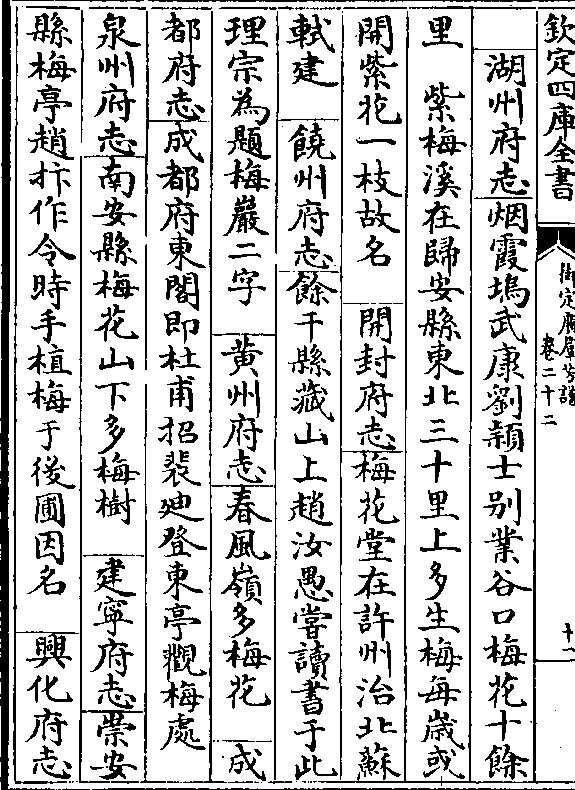 欽定四庫全書
御定廣羣芳譜
卷二十二
十一
湖州府志烟霞塢武康劉穎士别業谷口梅花十餘
里　紫梅溪在歸安縣東北三十里上多生梅每歲或
開紫花一枝故名　開封府志梅花堂在許州治北蘇
軾建　饒州府志餘干縣藏山上趙汝愚嘗讀書于此
理宗為題梅巖二字　黄州府志春風嶺多梅花　成
都府志成都府東閣即杜甫招裴廸登東亭觀梅處
泉州府志南安縣梅花山下多梅樹　建寧府志崇安
縣梅亭趙抃作令時手植梅于後圃因名　興化府志